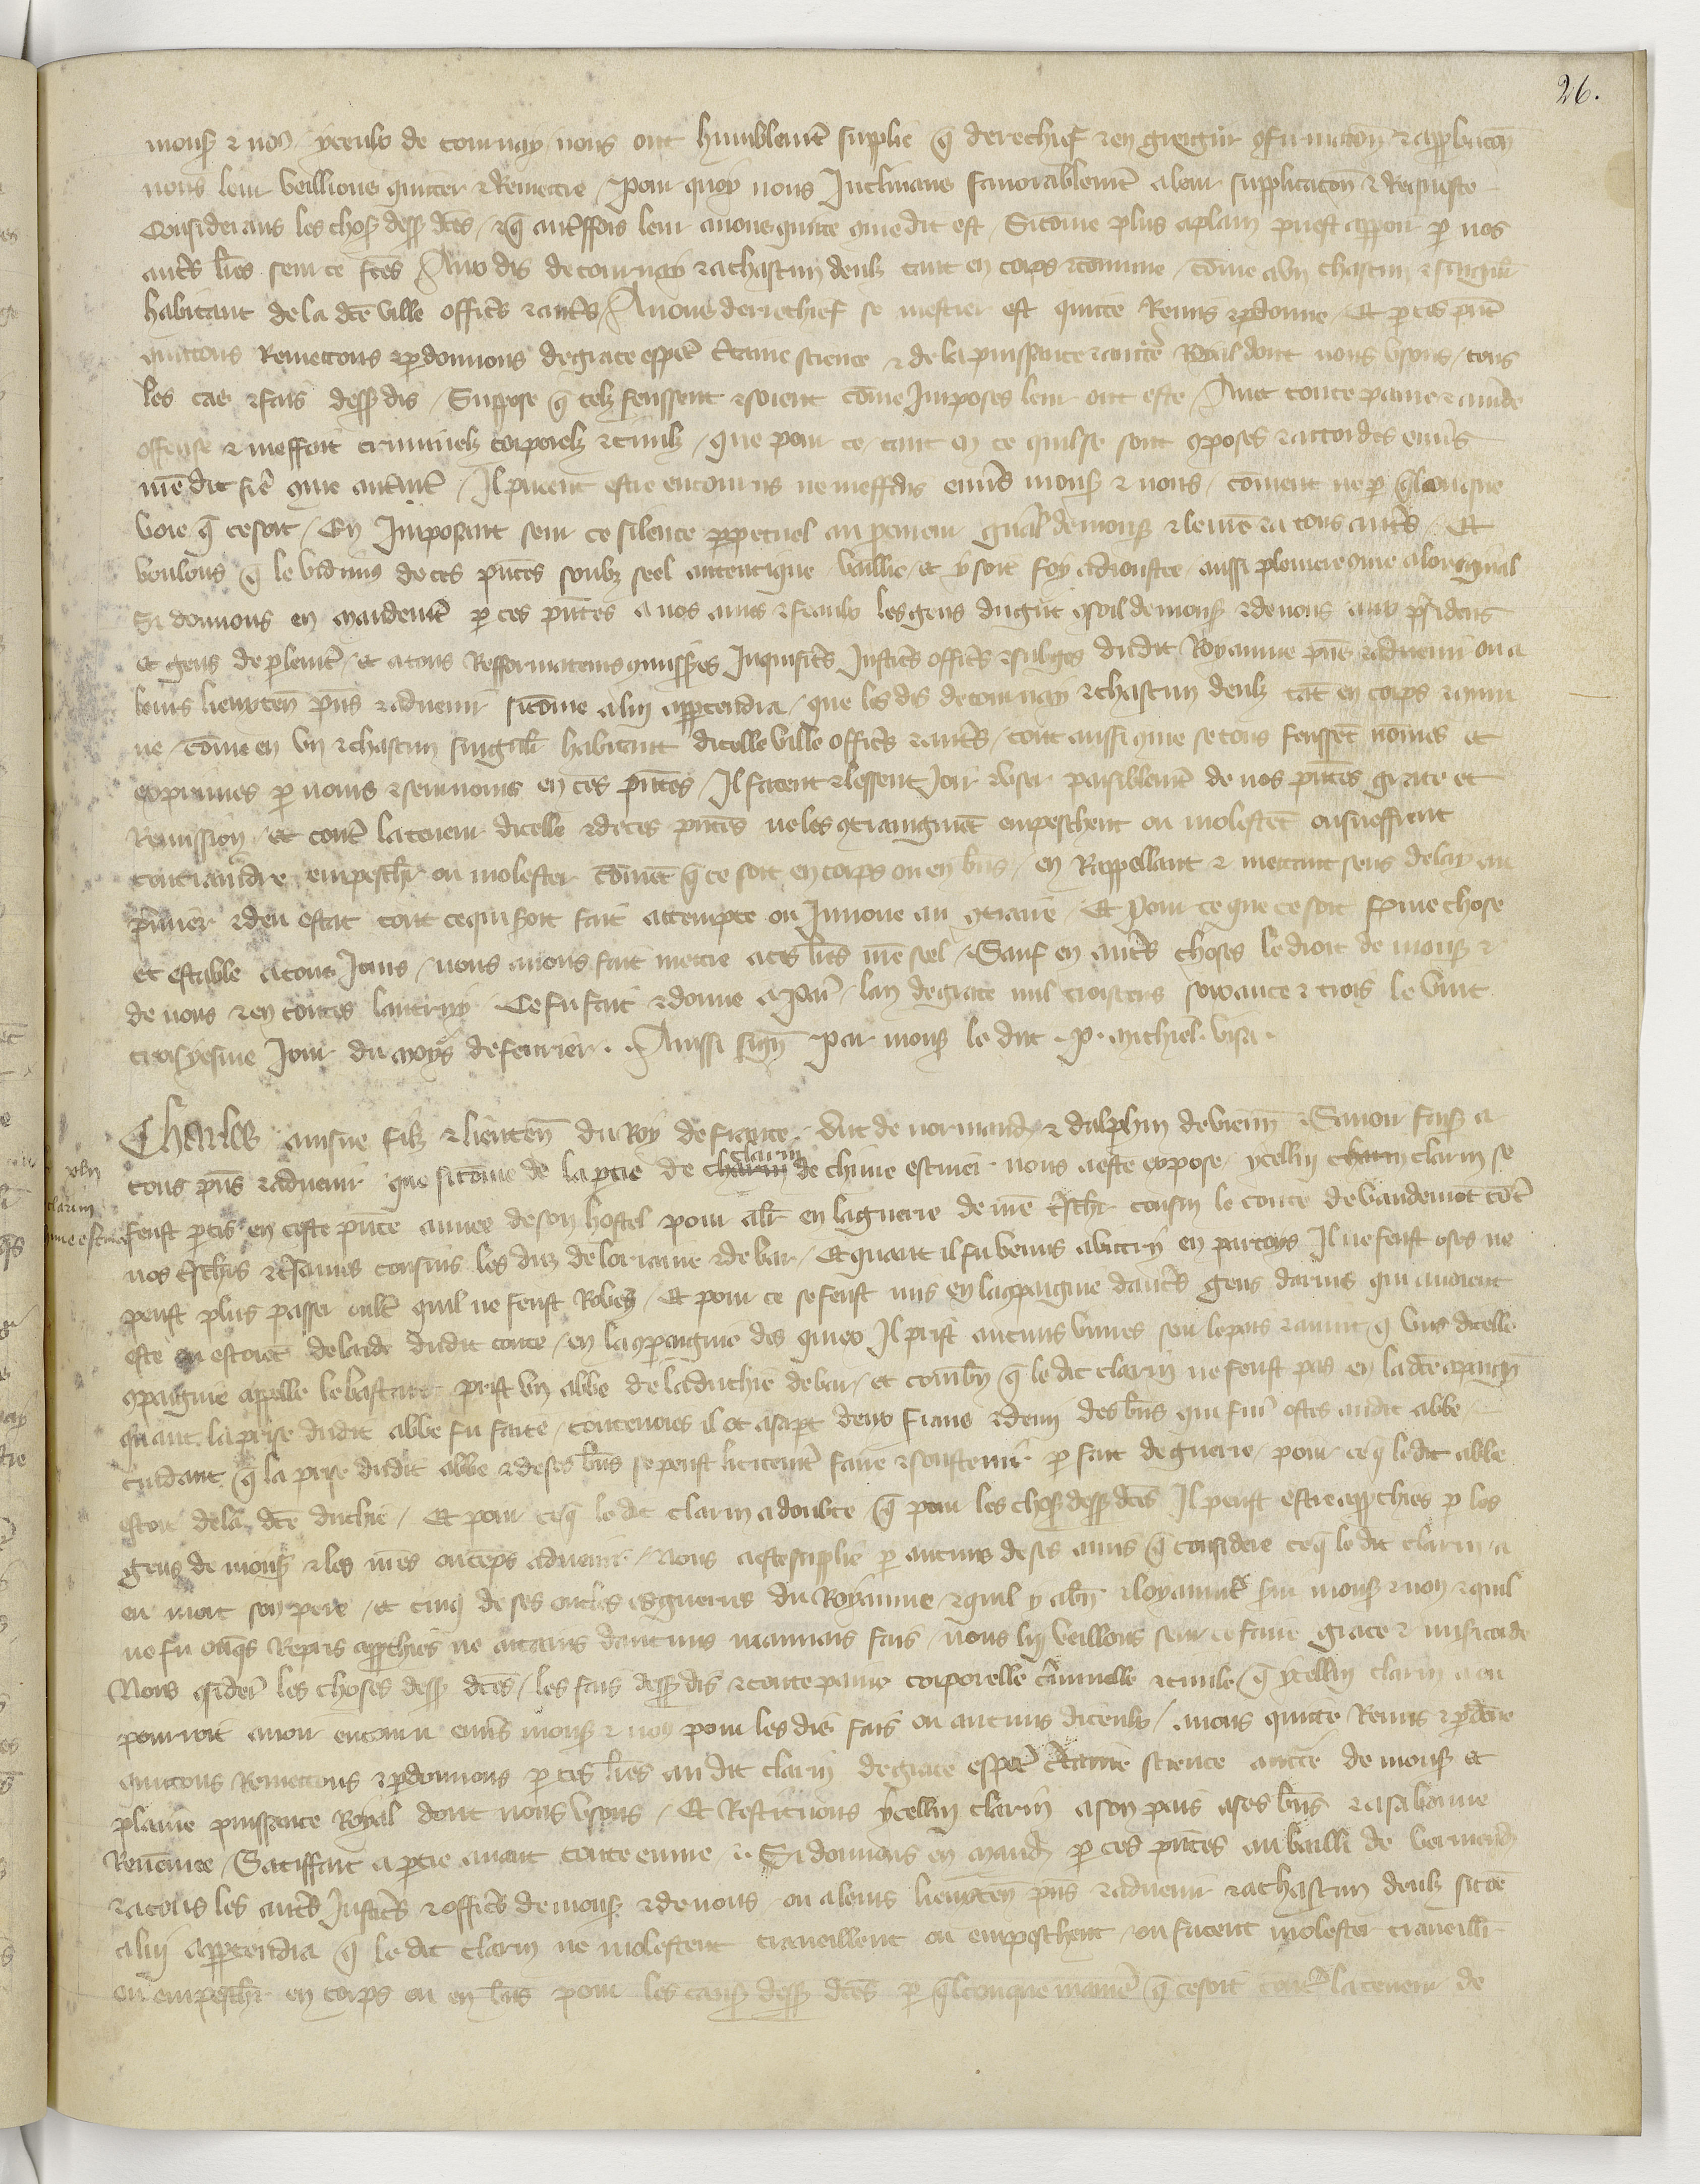 26.
mons̃ & nos / yceulx de tournay / nous ont humblemẽt supplie q̃ derechief & en greigñr ꝯfirmaciõn & approbaciõn
nous leur veillions quitter & Remettre / Pour quoy nous Inclinans favorablemẽt a leur supplicaciõn & Requeste
Considerans les chos̃ dess̃ dc̃es / & q̃ autreffois leur avons quitte ꝯme dit est / Sicõme plus aplain puest apparoir ꝑ nos
autr̃s lr̃es seur ce fc̃es / Aux dis de tournay & a chascun deulz tant en corps & comune / cõme a un chascun & singulr̃
habitant de la dc̃e ville offic̃rs & autr̃s / Avons derrechief se mestier est quitte Remis & ꝑdonne / Et ꝑ ces pñt̃
quittons Remettons & ꝑdonnons de grace espec̃l c̃taine science & de la puissance & auct̃e Royal dont nous usons / tous
les cas & fais dess̃ dis / Suppose q̃ telz feussent & soient cõme Imposes leur ont este / Avec toute paine & amẽde
offense & meffait criminelz corporelz & civilz / que pour ce / tant en ce quil se sont ꝯposes & accordes env̾s
nr̃e dit fr̃e ꝯme autremẽt / Il puent estre encourus ne meffais env̾s mons̃ & nous / cõment ne ꝑ q̃lconque
voie q̃ ce soit / En Imposant seur ce silence ꝑpetuel au ꝓcureur gñal de mons̃ & le nr̃e & a tous autr̃s / Et
voulons q̃ le vidimus de ces pñtes soubz seel autentique vaille / et y soit foy adioustee / aussi pleniere ꝯme a loriginal
Si donnons en mandemẽt ꝑ ces pñtes a nos ames & feaulx les gens du gñt ꝯseil de mons̃ & de nous aux p̾sidens
et gens de ꝑlemẽt / et a tous Refformateurs ꝯmissr̃es Inquisit̃rs Justic̃rs offic̃rs & subges dudit Royaume pñs & advenir ou a
leurs lieuxten̄ pñs & advenir sicõme a luy appartendra / que les dis de tournay & chascun deulz tãt en corps & ꝯmu
ne / cõme en un & chascun singulr̃ habitant dicelle ville offic̃rs & autr̃s / tout aussi ꝯme se tous feussẽt nõmes et
exprimes ꝑ noms & seurnoms en ces pñtes / Il facent & lessent Joir & user paisiblemẽt de nos pñtes grace et
Remission / et contr̃ la teneur dicelle & de ces pñtes ne les ꝯtraingnẽt empeschent ou molestẽt ou sueffrent
contraindre empeschr̃ ou molester cõmẽt q̃ ce soit en corps ou en bñs / en Rappellant & mettant sens delay au
p̾mier & deu estat tout ce qui soit fait attempte ou Innove au ꝯtraire / Et pour ce que ce soit ferme chose
et estable a tous Jours / nous avons fait mettre a ces lr̃es nr̃e seel / Sauf en autr̃s choses le droit de mons̃ &
de nous & en toutes lautruy / Ce fu fait & donne a Paris / lan de grace mil troiscens soixante & trois le vint
troisyesme Jour du moys de fevrier. Aussi sign̄ Par mons̃ le duc . P . michiel . visa .
Charles ainsne filz & lieuten̄ du Roy de france . duc de normand̃ & dalphin de vienñ Savoir fais̃ a
tous pñs & advenir que sicõme de la ꝑtie de charin clarin de chime escuier nous a este expose / ycellui charin clarin se
feust ꝑtis en ceste pñte annee de son hostel pour aler en la guerre de nr̃e tr̃schr̃ cousin le conte de vaudemõt cõtr̃
nos tr̃schrs & tr̃sames cousins les dux de lorraine & de bar / Et quant il fu venus a vittry en partoys Il ne feust oses ne
peust plus passer oultr̃ quil ne feust Robez / Et pour ce se feust mis en la ꝯpaignie dautr̃s gens darmes qui avoient
este ou estoiẽt de laide dudit conte / en la ꝯpaignie des quiex Il prist aucuns vivres seur le pais / & avint q̃ uns dicelle
ꝯpaignie appelle le bastart prist un abbe de la duchie de bar / et combñ q̃ le dit clarin ne feust pas en la dc̃e ꝯpaign̄
quant la prise dudit abbe fu faite / toutevoies il ot a sa part deux frans & demi des bñs qui furẽt ostes audit abbe /
cuidant q̃ la prise dudit abbe & de ses bñs se peust licitemẽt faire & soustenir ꝑ fait de guerre / pour ce q̃ le dit abbe
estoit de la dc̃e duchie / Et pour ce q̃ le dit clarin a doubte q̃ pour les chos̃ dess̃ dc̃es Il peust estre approchies ꝑ les
gens de mons̃ & les nr̃es ou temps advenir / Nous a este supplie ꝑ aucuns de ses amis q̃ considere ce q̃ le dit clarin a
eu mort son pere / et cinq de ses oncles es guerres du Royaume & quil y a bñ & loyaumẽt servi mons̃ & nous & quil
ne fu onq̃s Repris approchies ne attains daucuns mauvais fais / nous luy veillons seur ce faire grace & misericorde
Nous ꝯsider̃ les choses dess̃ dc̃es / les fais dess̃ dis & toute paine corporelle criminelle & civile q̃ ycellui clarin a ou
pourroit avoir encouru env̾s mons̃ & nous pour les dis fais ou aucuns diceulx / avons quitte Remis & ꝑdõne
quittons Remettons & ꝑdonnons ꝑ ces lr̃es au dit clarin de grace espec̃l c̃taine science auct̃e de mons̃ et
plaine puissance Royal dont nous usons / Et Restituons ycellui clarin a son pais a ses bñs & a sa bonne
Renõmee / Satiffait a ꝑtie avant toute euvre / Si donnons en mand̃ ꝑ ces pñtes au bailli de vermend̃
& a tous les autr̃s Justic̃rs & offic̃rs de mons̃ & de nous / ou a leurs lieuxten̄ pñs & advenir & a chascun deulz sicõe
a luy appartendra q̃ le dit clarin ne molestent traveillent ou empeschent / ou facent molester traveillr̃
ou empeschr̃ en corps ou en bñs pour les causs̃ dess̃ dc̃es ꝑ q̃lconque manr̃e q̃ ce soit contr̃ la teneur de